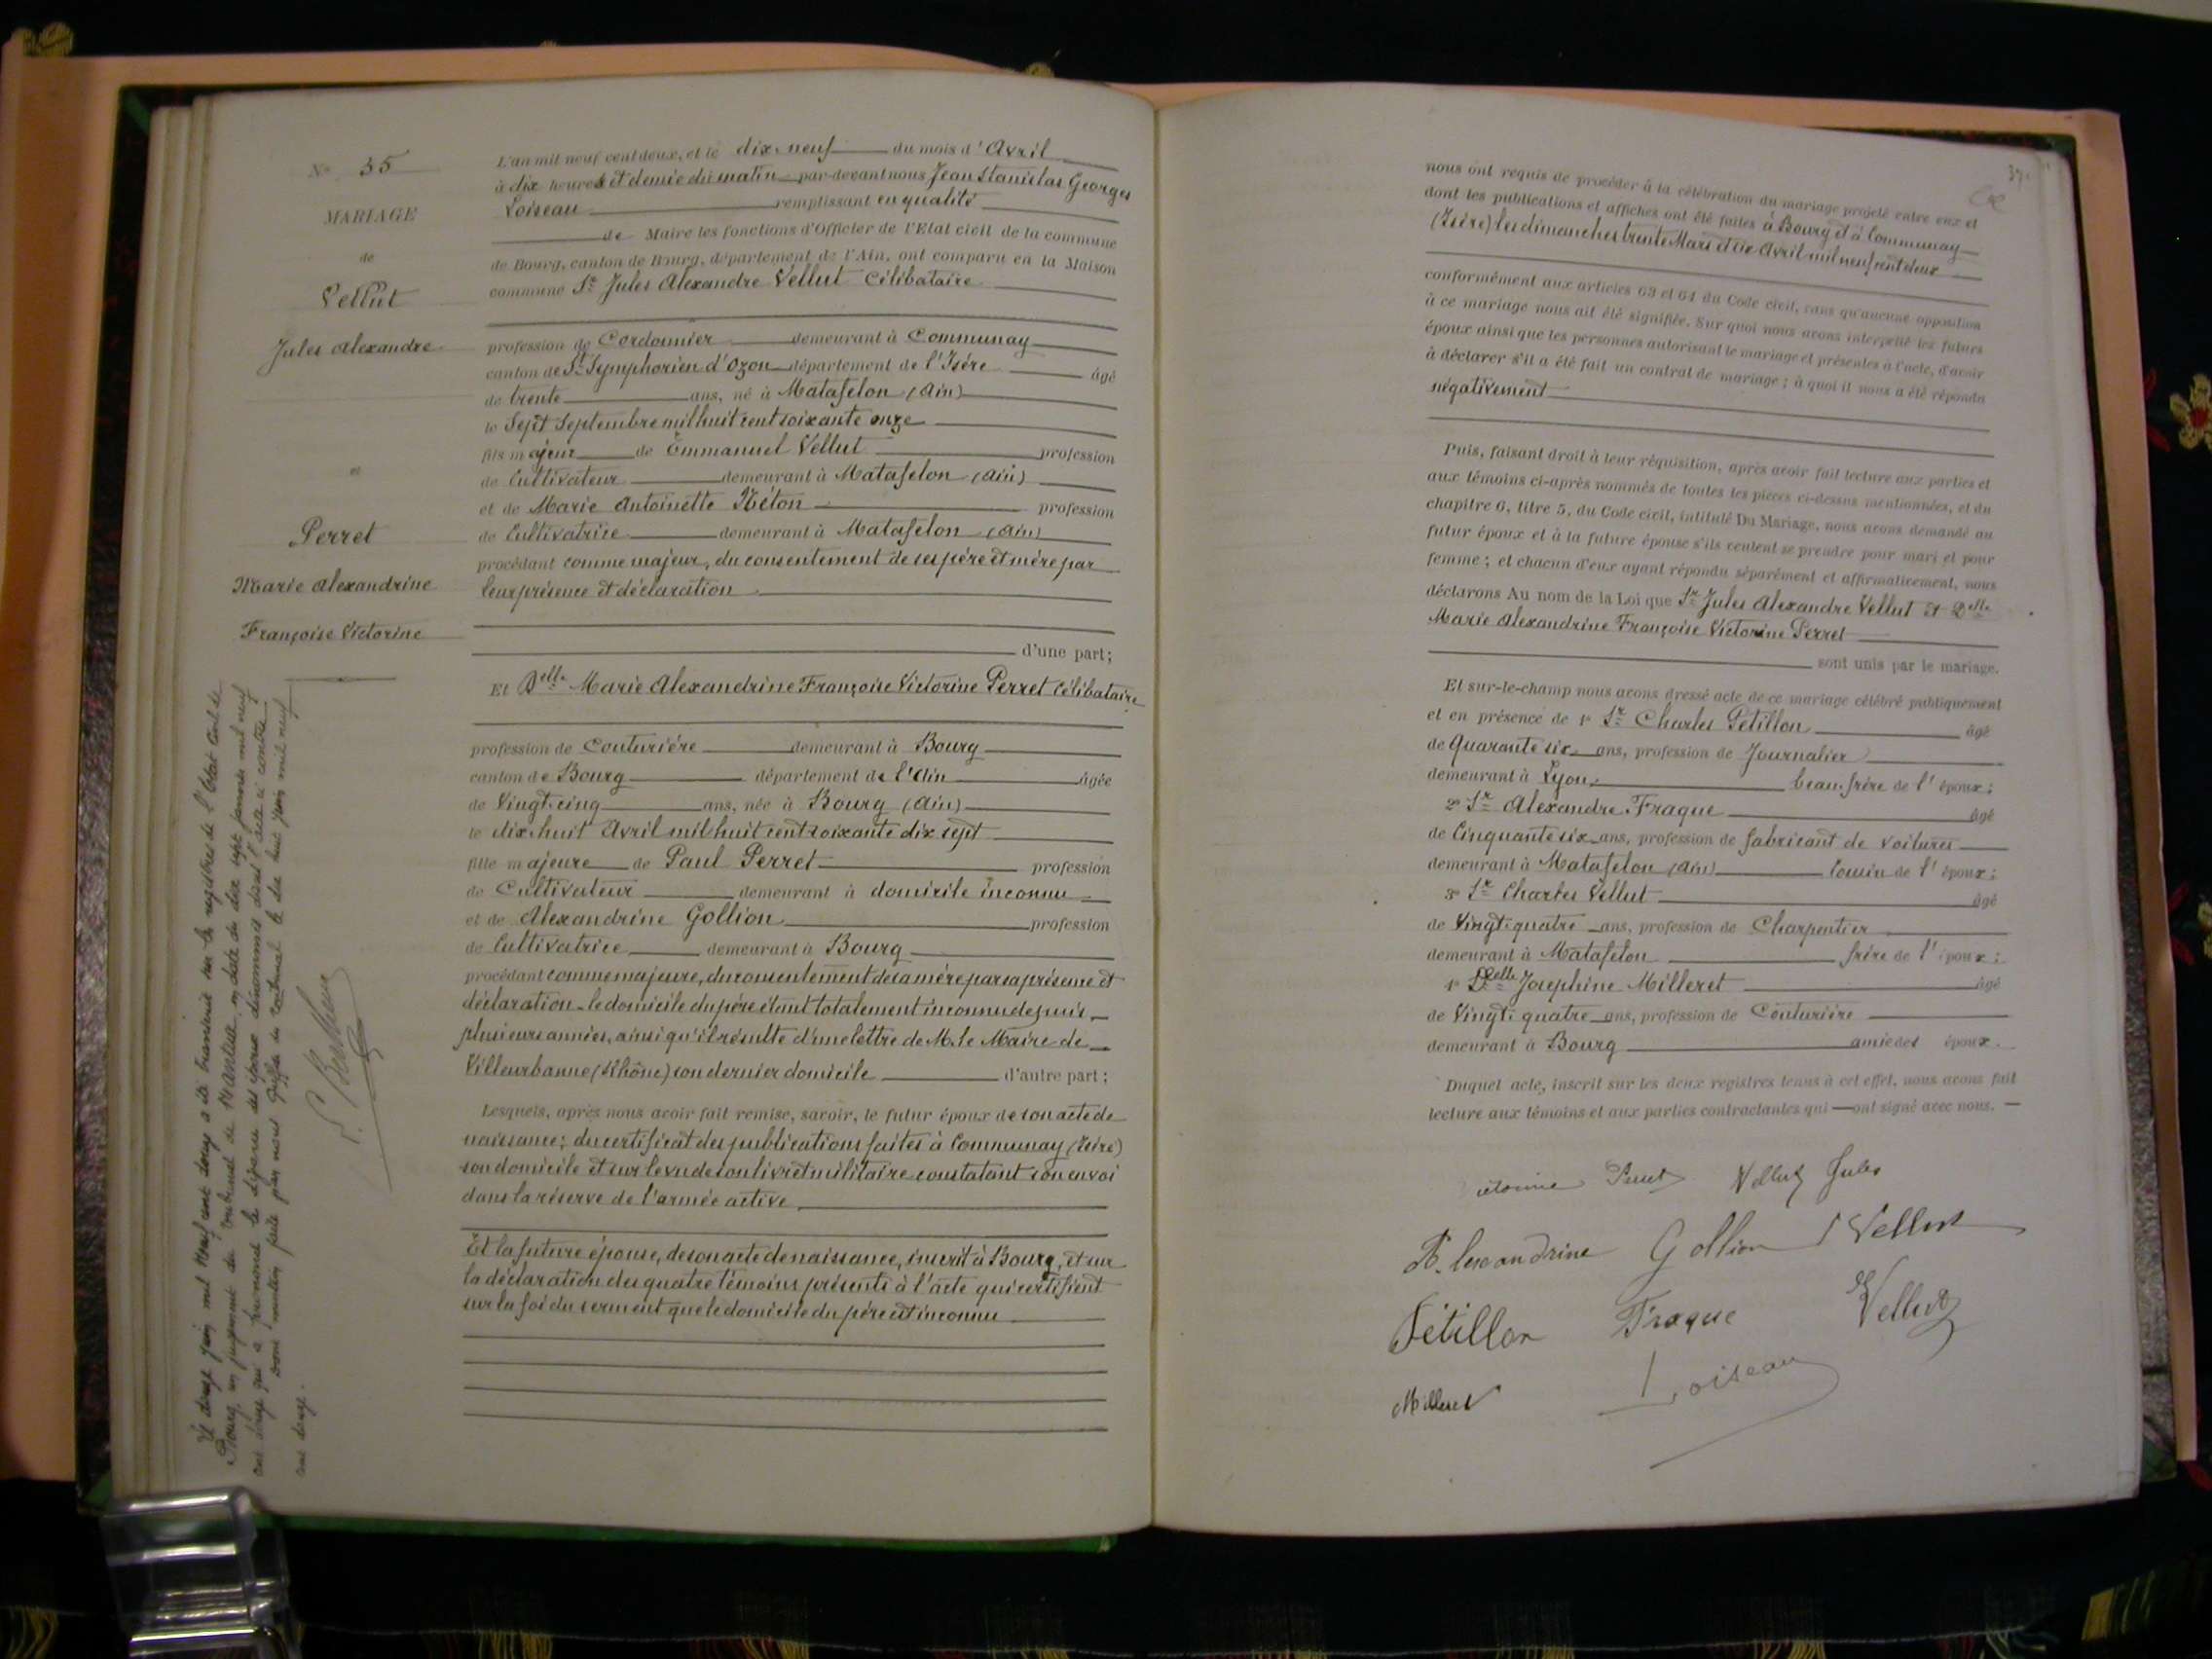 N° 35
MARIAGE
de
Vellut
Jules Alexandre
et
Perret
Marie Alexandrine
Françoise Victorine
Le douze juin mil Neuf cent douze a été transcrit sur les registres de l'Etat Civil de
Bourg, un jugement du tribunal de Nantua, en date du dix sept janvier mil neuf
cent douze qui a prononcé le divorce des époux dénommés dans l'acte ci contre
Dont mention faite par nous Greffier du tribunal le dix huit juin mil neuf
cent douze.
L'an mil neuf cent deux, et le dix-neuf du mois d'Avril
à dix heures et demie du matin par-devant nous Jean Stanislas Georges
Loiseau remplissant en qualité
de Maire les fonctions d'Officier de l'Etat civil de la commune
de Bourg, canton de Bourg, département de l'Ain, ont comparu en la Maison
commune Sr Jules Alexandre Vellut Célibataire
profession de Cordonnier demeurant à Communay
canton de St Symphorien d'Ozon département de l'Isére âgé
de trente ans, né à Matafelon (Ain)
le Sept Septembre mil huit cent soixante onze
fils majeur de Emmanuel Vellut profession
de Cultivateur demeurant à Matafelon (Ain)
et de Marie Antoinette profession
de Cultivatrice demeurant à Matafelon (Ain)
procédant comme majeur, du consentement de ses père et mère par
leur présence et déclaration
d'une part;
Et Delle Marie Alexandrine Françoise Victorine Perret célibataire
profession de Couturière demeurant à Bourg
canton de Bourg département de l'Ain âgée
de Vingt cinq ans, née à Bourg (Ain)
le dix huit Avril mil huit cent soixante dix sept
fille majeure de Paul Perret profession
de Cultivateur demeurant à domicile inconnu
et de Alexandrine Gollion profession
de Cultivatrice demeurant à Bourg
procédant comme majeure, du consentement de sa mère par sa présence et
déclaration - le domicile du père étant totalement inconnu depuis
plusieurs années, ainsi qu'il résulte d'une lettre de M. le Maire de
Villeurbanne (Rhône) son dernier domicile d'autre part;
Lesquels, après nous avoir fait remise, savoir, le futur époux de son acte de
naissance; du certificat des publications faites à Communay (Isère)
son domicile et sur le vu de son livret militaire constatant son envoi
dans la réserve de l'armée active
Et la future épouse, de son acte de naissance, inscrit à Bourg, et sur
la déclaration des quatre témoins présents à l'acte qui certifient
sur la foi du serment que le domicile du père est inconnu
37
nous ont requis de procéder à la célébration du mariage projeté entre eux et
dont les publications et affiches ont été faites à Bourg et à Communay
(Isère) les dimanches trente Mars et six Avril mil neuf cent deux
conformément aux articles 63 et 64 du Code civil, sans qu'aucune opposition
à ce mariage nous ait été signifiée. Sur quoi nous avons interpellé les futurs
époux ainsi que les personnes autorisant le mariage et présentes à l'acte, d'avoir
à déclarer s'il a été fait un contrat de mariage; à quoi il nous a été répondu
négativement
Puis, faisant droit à leur réquisition, après avoir fait lecture aux parties et
aux témoins ci-après nommés de toutes les pièces ci-dessus mentionnées, et du
chapitre 6, titre 5, du Code civil, intitulé Du Mariage, nous avons demandé au
futur époux et à la future épouse s'ils veulent se prendre pour mari et pour
femme; et chacun d'eux ayant répondu séparément et affirmativement, nous
déclarons Au nom de la Loi que Sr Jules Alexandre Vellut et Delle
Marie Alexandrine Françoise Victorine Perret
sont unis par le mariage.
Et sur-le-champ nous avons dressé acte de ce mariage célébré publiquement
et en présence de 1° Sr Charles Pétillon âgé
de Quarante six ans, profession de Journalier
demeurant à Lyon beau-frère de l'époux;
2° Sr Alexandre Fraque âgé
de Cinquante six ans, profession de fabricant de voitures
demeurant à Matafelon (Ain) Cousin de l'époux;
3° Sr Charles Vellut âgé
de Vingt quatre ans, profession de Charpentier
demeurant à Matafelon frère de l'époux;
4° Delle Joséphine Milleret âgé
de Vingt quatre ans, profession de Couturière
demeurant à Bourg amie des époux.
Duquel acte, inscrit sur les deux registres tenus à cet effet, nous avons fait
lecture aux témoins et aux parties contractantes qui ont signé avec nous.
Perret Vellut Jules
Alexandrine Gollion Vellut
Pétillon Fraque Vellut
Milleret Loiseau